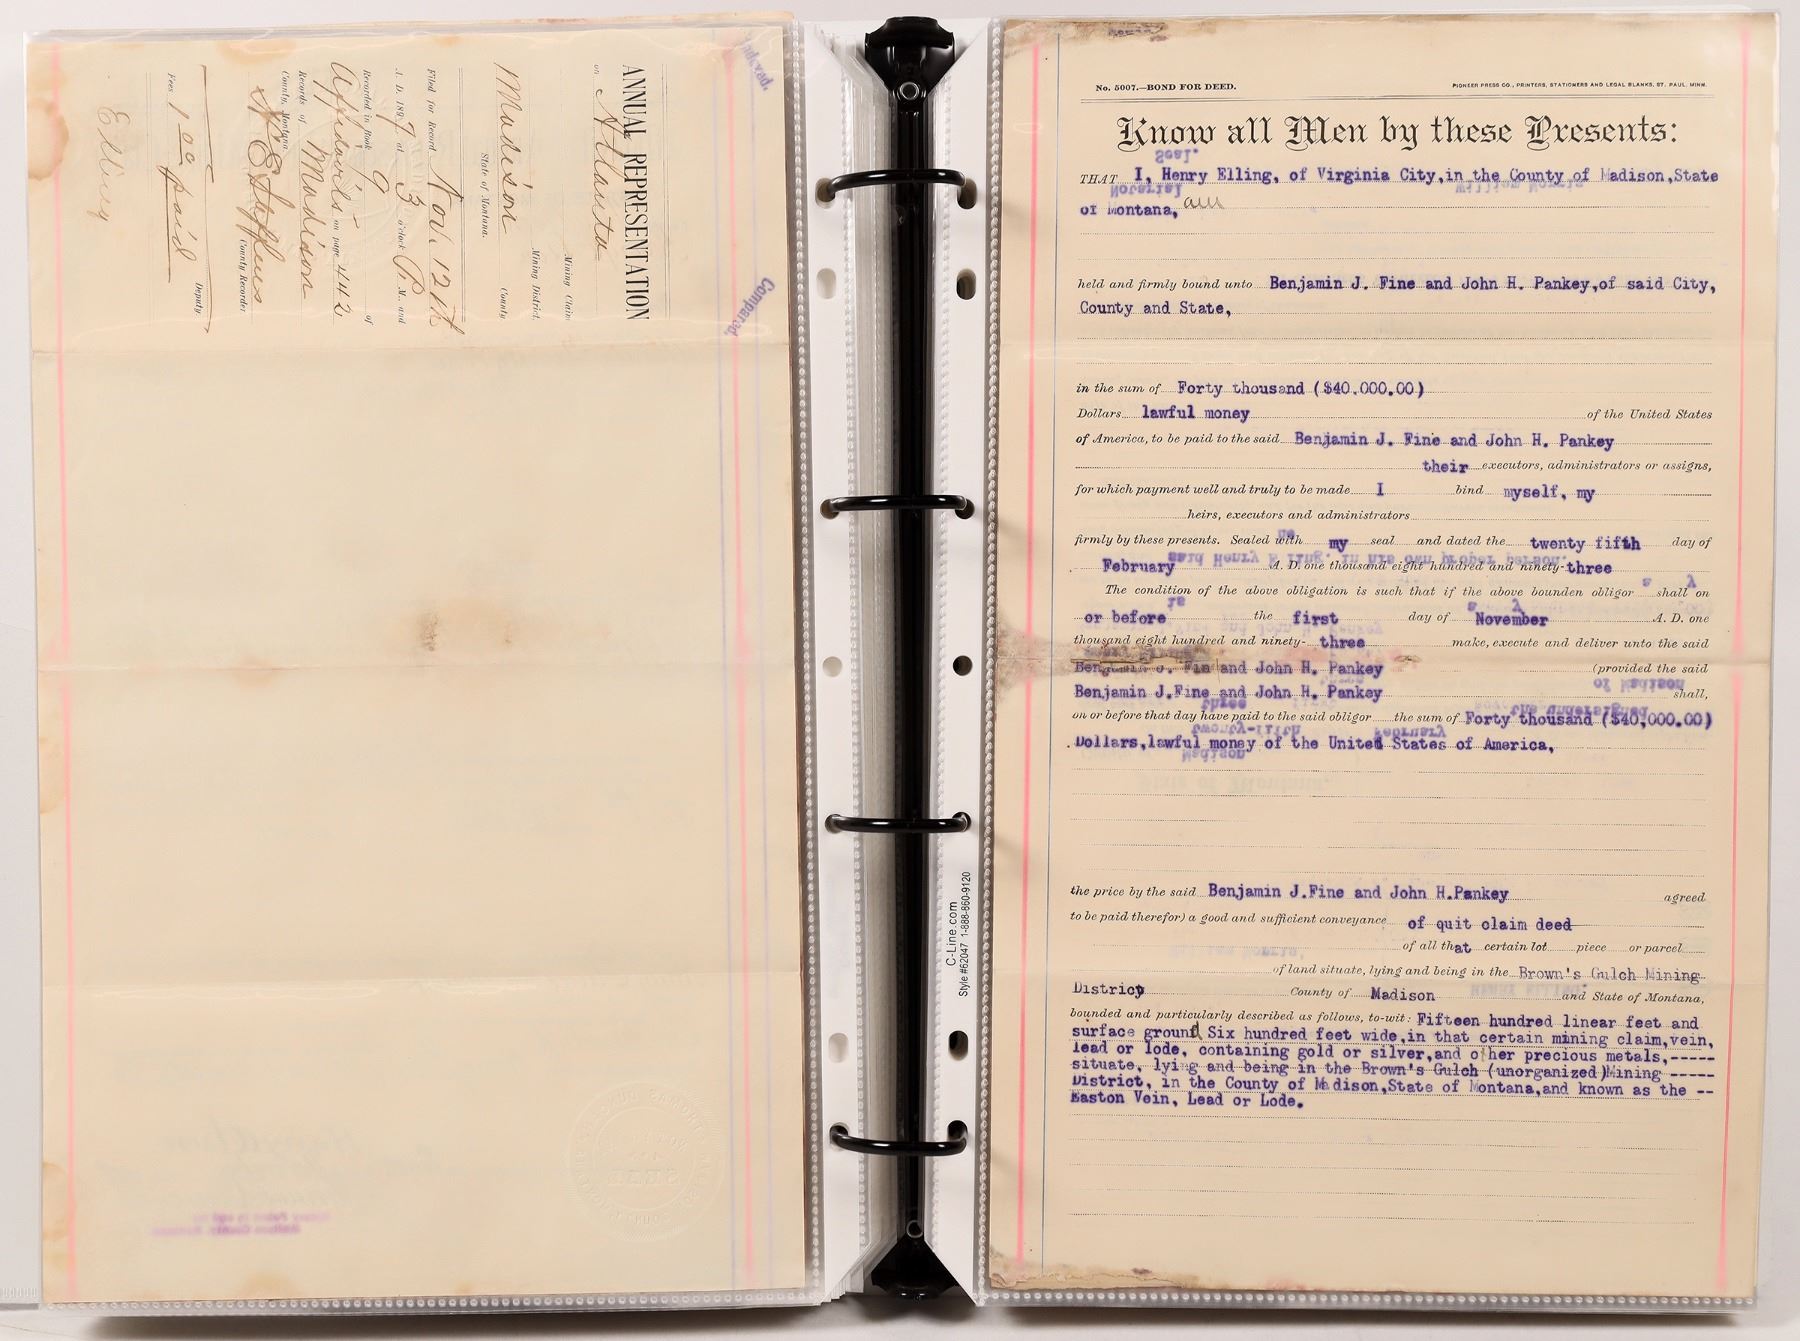 Indexed.
Compared.
ANNUAL REPRESENTATION
on Atlanta
Mining Claim
Mining District.
Madison County
State of Montana.
Filed for Record Nov. 12th
A. D. 1897 at 3 o'clock P. M., and
Recorded in Book 9 of
Affidavits on page 442
Records of Madison
County, Montana.
County Recorder.
Deputy
Fees 1 00 paid
Elling
C-Line.com
Style #62047 1-888-860-9120
No. 5007.—BOND FOR DEED.
PIONEER PRESS CO., PRINTERS, STATIONERS AND LEGAL BLANKS, ST. PAUL, MINN.
Know all Men by these Presents:
THAT I, Henry Elling, of Virginia City,in the County of Madison,State
of Montana, am
held and firmly bound unto Benjamin J. Fine and John H. Pankey,of said City,
County and State,
in the sum of Forty thousand ($40.000.00)
Dollars lawful money of the United States
of America, to be paid to the said Benjamin J. Fine and John H. Pankey
their executors, administrators or assigns,
for which payment well and truly to be made I bind myself, my
heirs, executors and administrators
firmly by these presents. Sealed with my seal and dated the twenty fifth day of
February A. D. one thousand eight hundred and ninety-three
The condition of the above obligation is such that if the above bounden obligor shall on
or before the first day of November A. D. one
thousand eight hundred and ninety- three make, execute and deliver unto the said
Benjamin J. Fin and John H. Pankey (provided the said
Benjamin J.Fine and John H. Pankey shall,
on or before that day have paid to the said obligor the sum of Forty thousand ($40,000.00)
Dollars,lawful money of the United States of America,
the price by the said Benjamin J.Fine and John H.Pankey agreed
to be paid therefor) a good and sufficient conveyance of quit claim deed
of all that certain lot piece or parcel
of land situate, lying and being in the Brown's Gulch Mining
District County of Madison and State of Montana,
bounded and particularly described as follows, to-wit: Fifteen hundred linear feet and
surface ground Six hundred feet wide,in that certain mining claim,vein,
lead or lode, containing gold or silver,and other precious metals,-----
situate, lying and being in the Brown's Gulch (unorganized)Mining -----
District, in the County of Madison,State of Montana,and known as the --
Easton Vein, Lead or Lode.